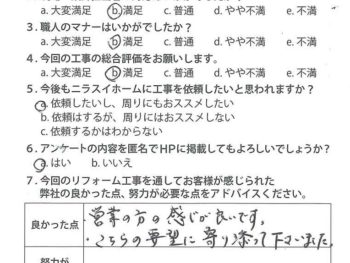 a. 大変満足 b. 満足 c. 普通 d. やや不満 e. 不満
3. 職人のマナーはいかがでしたか？
a. 大変満足 b. 満足 c. 普通 d. やや不満 e. 不満
4. 今回の工事の総合評価をお願いします。
a. 大変満足 b. 満足 c. 普通 d. やや不満 e. 不満
5. 今後もニラスイホームに工事を依頼したいと思われますか？
a. 依頼したいし、周りにもおススメしたい
b. 依頼はするが、周りにはおススメしない
c. 依頼するかはわからない
6. アンケートの内容を匿名でHPに掲載してもよろしいでしょうか？
a. はい b. いいえ
7. 今回のリフォーム工事を通してお客様が感じられた
弊社の良かった点、努力が必要な点をアドバイスください。
良かった点
・営業の方の感じが良いです。
・こちらの要望に寄り添って下さいました。
努力が